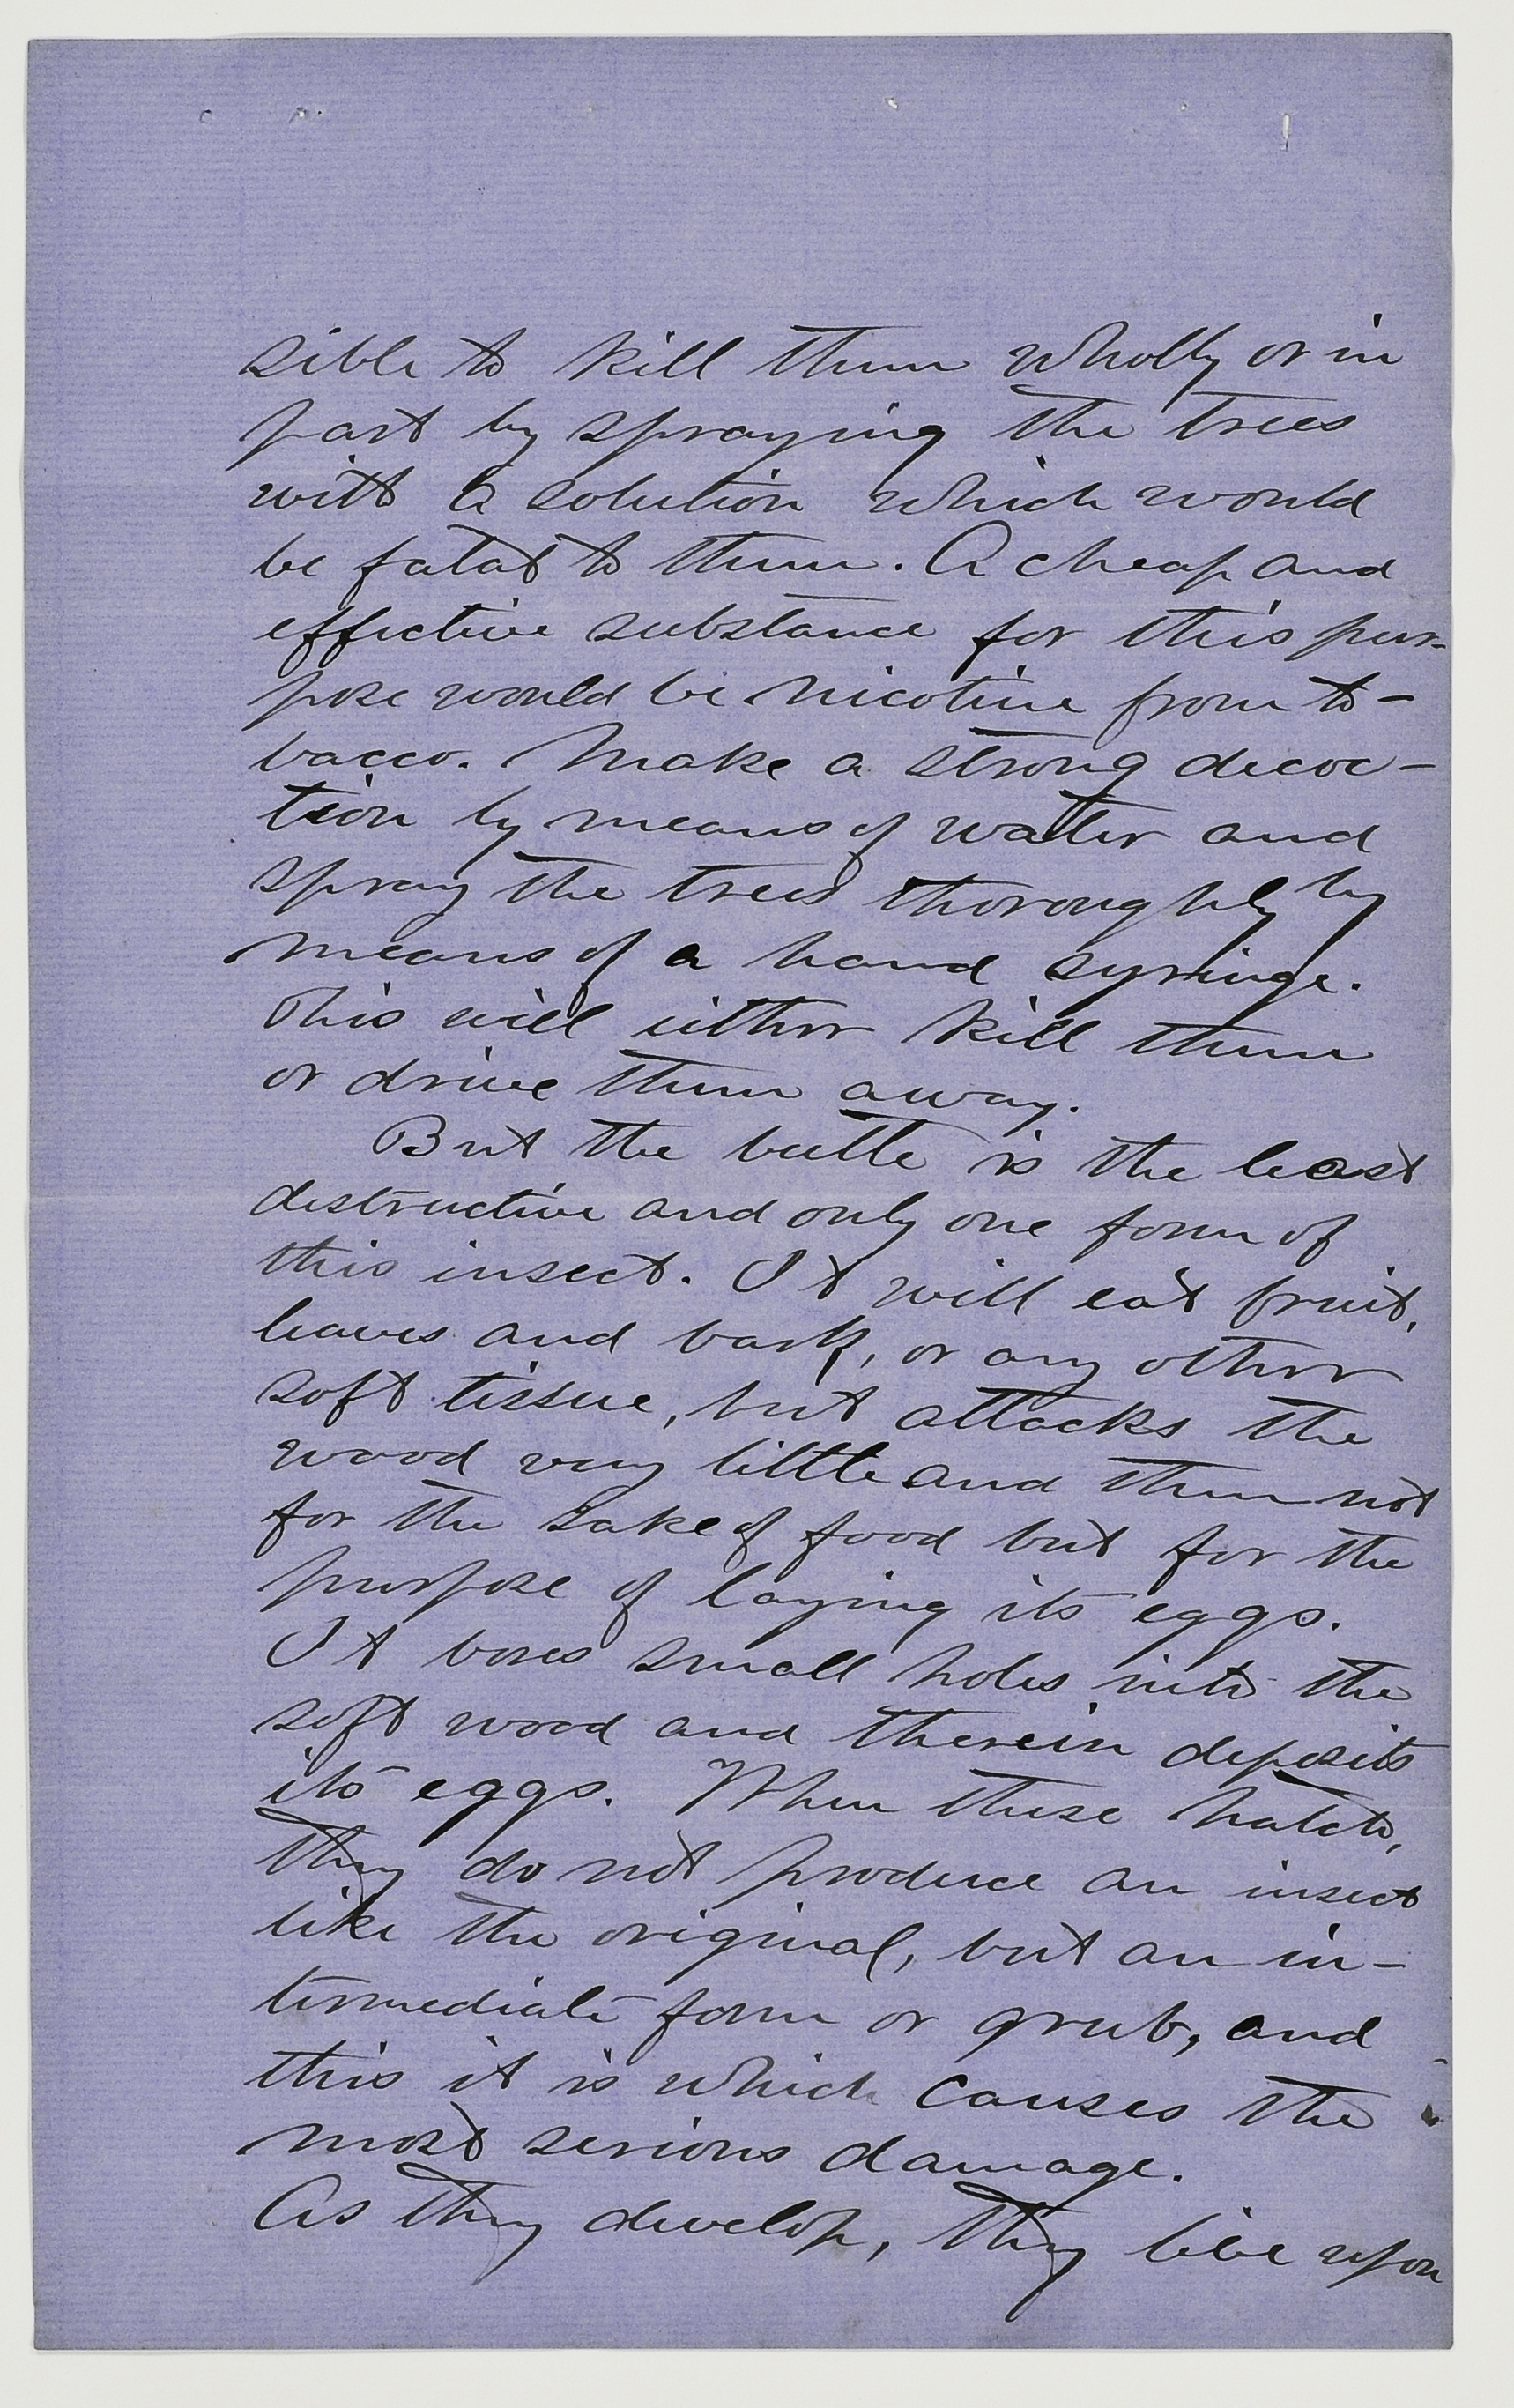 sible to kill them wholly or in
part by spraying the trees
with a solution which would
be fatal to them. A cheap and
effective substance for this pur-
pose would be nicotine from to-
bacco. Make a strong decoc-
tion by means of water and
spray the trees thoroughly by
means of a hand syringe.
This will either kill them
or drive them away.
But the beetle is the least
destructive and only one form of
this insect. It will eat fruit,
leaves and bark, or any other
soft tissue, but attacks the
wood very little and then not
for the sake of food but for the
purpose of laying its eggs.
It bores small holes into the
soft wood and therein deposits
its eggs. When these hatch,
they do not produce an insect
like the original, but an in-
termediate form or grub, and
this it is which causes the
most serious damage.
As they develop, they live upon